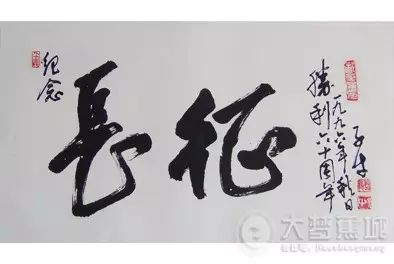 紀念
長征
勝利六十周年
一九九六年秋日
大智蕉城